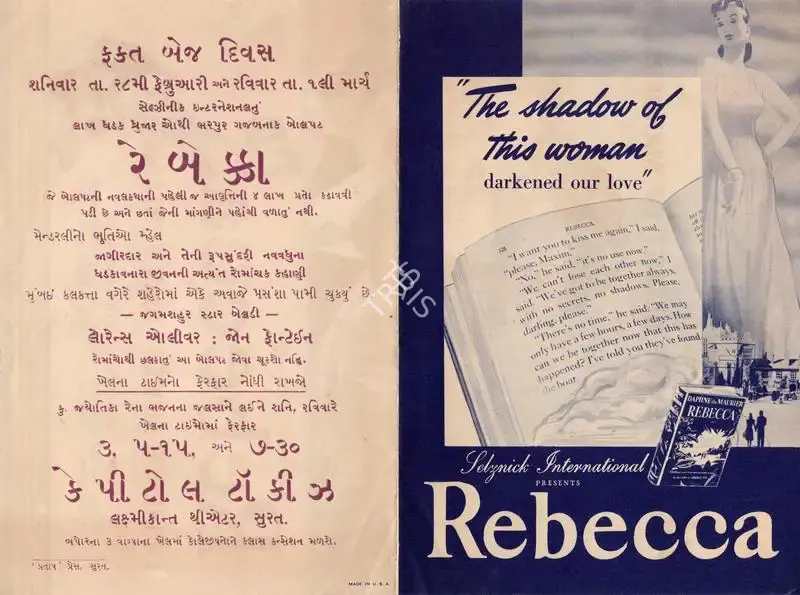 ફક્ત બેજ દિવસ
શનિવાર તા. ૨૮મી ફેબ્રુઆરી અને રવિવાર તા. ૧લી માર્ચ
સેલ્ઝનીક ઇન્ટરનેશનલનું
લાખ ધડક ધ્રુજાર ઓથી ભરપુર ગજબનાક બોલપટ
રે બે ક્કા
જે બોલપટની નવલકથાની પહેલી જ આવૃત્તિની ૪ લાખ પ્રતો કઢાવવી
પડી છે અને છતાં જેની માંગણીને પહોંચી વળાતું નથી.
મેન્ડરલીનો ભુતિઓ મ્હેલ
જાગીરદાર અને તેની રૂપસુંદરી નવવધુના
ધડકાવનારા જીવનની અત્યંત રોમાંચક કહાણી
મુંબઇ કલકત્તા વગેરે શહેરોમાં એકે અવાજે પ્રસંશા પામી ચુક્યું છે
— જગમશહુર સ્ટાર બેલડી —
લોરેન્સ ઓલીવર : જોન ફોન્ટેઇન
રોમાંચોથી છલકાતું આ બોલપટ જોવા ચૂકશો નહિ.
ખેલના ટાઇમનો ફેરફાર નોંધી રાખજો
કુ. જ્યોતિકા રેના ભજનના જલસાને લઇને શનિ, રવિવારે
ખેલના ટાઇમોમાં ફેરફાર
૩, ૫-૧૫, અને ૭-૩૦
કે પી ટો લ ટૉ કી ઝ
લક્ષ્મીકાન્ત થીએટર, સુરત.
બપોરના ૩ વાગ્યાના ખેલમાં કોલેજીયનોને કલાસ કન્સેશન મળશે.
'પ્રતાપ' પ્રેસ. સુરત.
MADE IN U. S. A.
"The shadow of
this woman
darkened our love"
REBECCA
"I want you to kiss me again," I said,
"please, Maxim."
"No," he said, "it's no use now."
"We can't lose each other now," I
said. "We've got to be together always,
with no secrets, no shadows. Please,
darling, please."
"There's no time," he said. "We may
only have a few hours, a few days. How
can we be together now that this has
happened? I've told you they've found
the boat
DAPHNE du MAURIER
REBECCA
Selznick International
PRESENTS
Rebecca